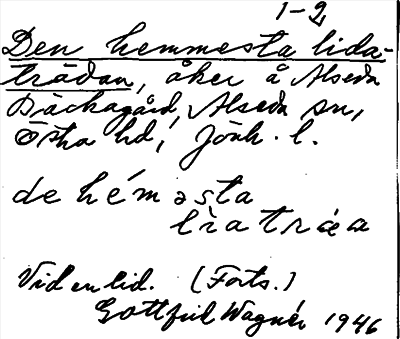 1-2
Den hemmesta lida-
trädan, åker å Alseda
Bäckagård, Alseda sn,
Östra hd, Jönk. l.
de héməsta
lìatræa
Vid en lid. (Forts.)
Gottfrid Wagnér 1946